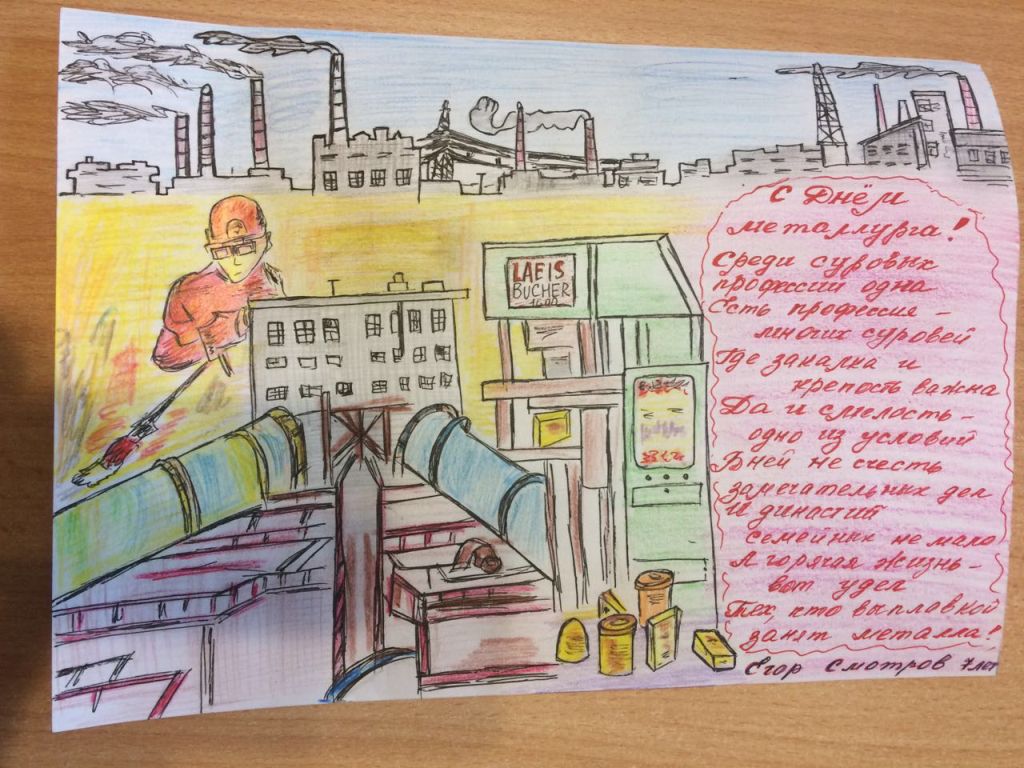 LAEIS
BUCHER
1600
С Днём
металлурга!
Среди суровых
профессий одна
Есть профессия -
многих суровей
Где закалка и
крепость важна
Да и смелость -
одно из условий
В ней не счесть
замечательных дел
И династий
семейных не мало
А горячая жизнь -
вот удел
Тех, кто выплавкой
занят металла!
Егор Смотров 7 лет